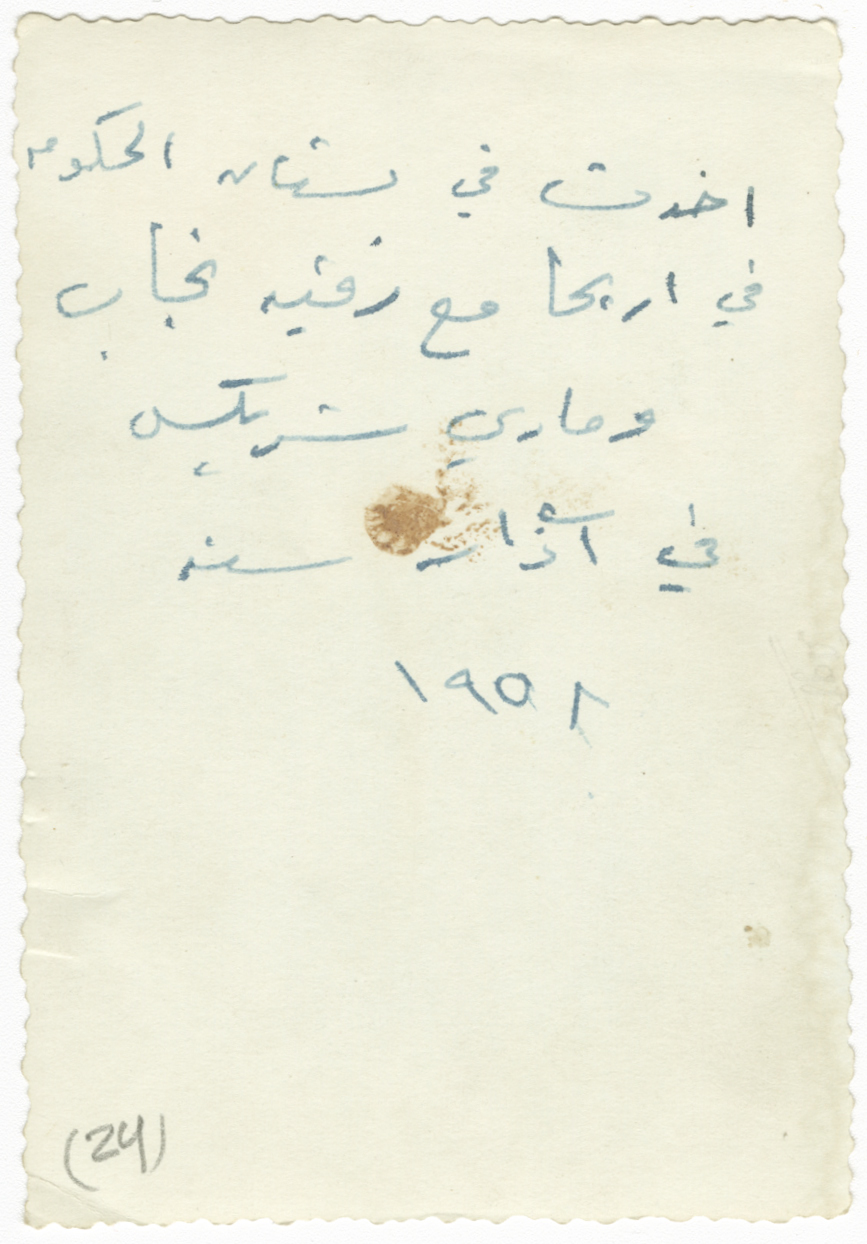 اخذت في بستان الحكومه
في اريحا مع رفقيه نجاب
و ماري شريكس
في آذار سنه
١٩٥٨
(24)